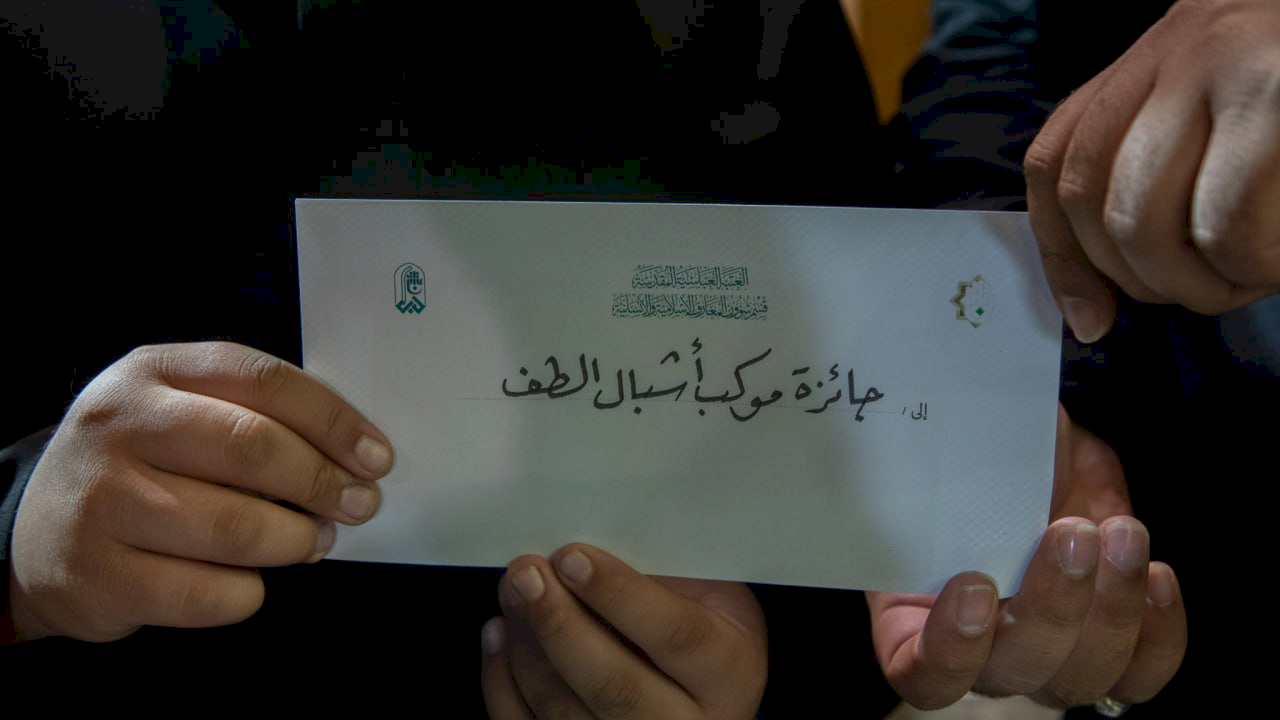 العتبة العباسية المقدسة
قسم شؤون المعارف الإسلامية والإنسانية
إلى / جائزة موكب أشبال الطف